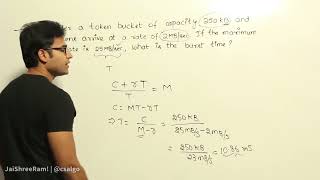 a token bucket of capacity 250 KB and
arrive at a rate of 2MB/sec. If the maximum
rate is 25MB/sec, what is the burst time?
T
C + rT
T
= M
C = MT - rT
⇒ T = C / M - r = 250KB / 25MB/s - 2MB/s
= 250KB / 23MB/s = 10.86 ms
JaiShreeRam! | @csalgo